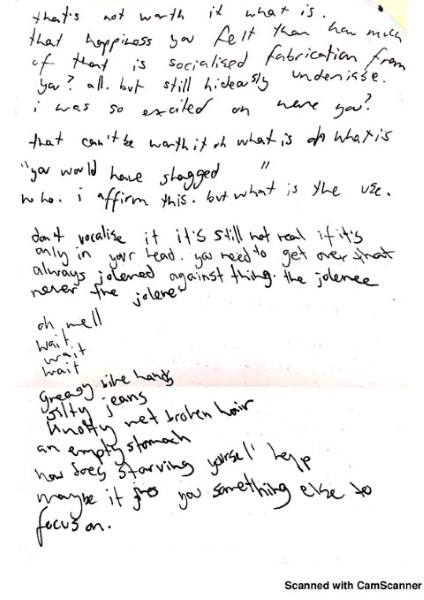 that's not worth it what is.
that happiness you felt then how much
of that is socialised fabrication from
you? all. but still hideously undeniable.
i was so excited on were you?
that can't be worth it oh what is oh what is
"you would have shagged "
who. i affirm this. but what is the use.
don't vocalise it it's still not real if it's
only in your head. you need to get over that
always against thing. the
never the
oh well
wait.
wait
wait
greasy bike hands
silty jeans
knotty wet broken hair
an empty stomach
how does starving yourself help
maybe it you something else to
focus on.
Scanned with CamScanner